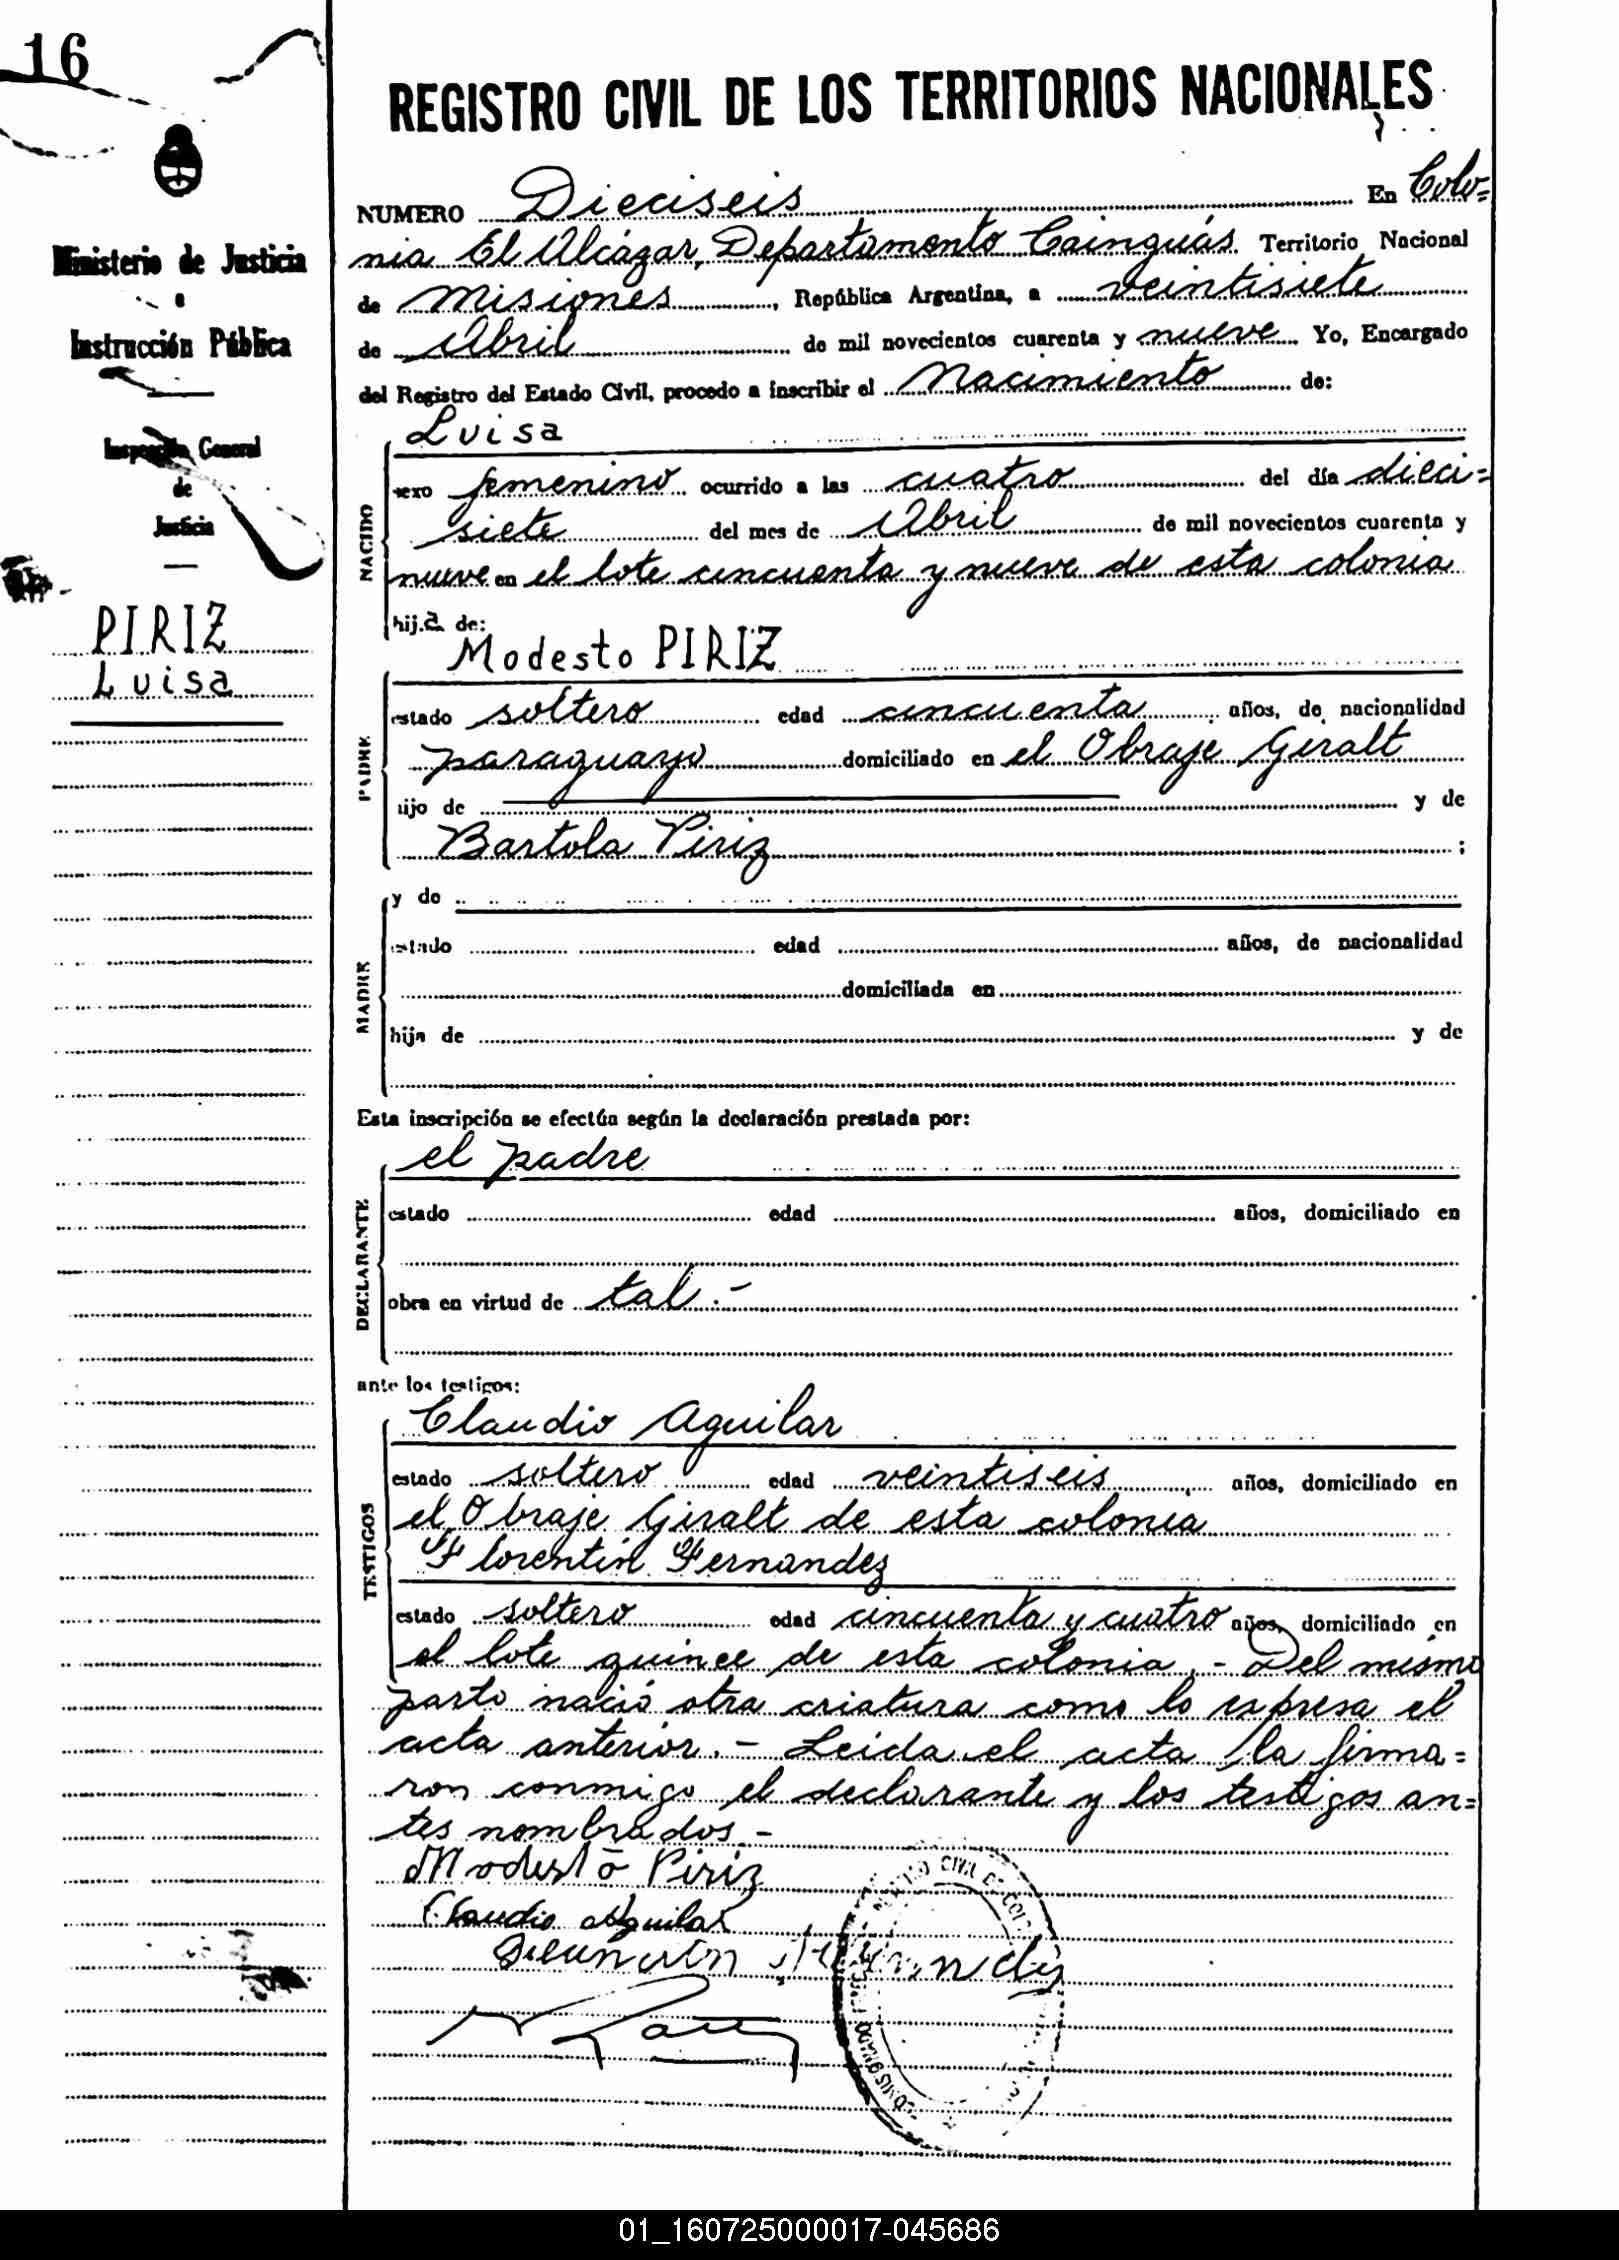 16
Ministerio de Justicia
e
Instrucción Pública
Inspección General
de
Justicia
PIRIZ
Luisa
REGISTRO CIVIL DE LOS TERRITORIOS NACIONALES
NUMERO Dieciseis En Colo=
nia El Alcázar, Departamento Cainguás Territorio Nacional
de Misiones, República Argentina, a veintisiete
de Abril de mil novecientos cuarenta y nueve Yo, Encargado
del Registro del Estado Civil, procedo a inscribir el Nacimiento de:
Luisa
NACIDO
sexo femenino ocurrido a las cuatro del día dieci=
siete del mes de Abril de mil novecientos cuarenta y
nueve en el lote cincuenta y nueve de esta colonia
hija de:
Modesto PIRIZ
PADRE
estado soltero edad cincuenta años, de nacionalidad
paraguayo domiciliado en el Obraje Giralt
hijo de y de
Bartola Piriz ;
MADRE
y de
estado edad años, de nacionalidad
domiciliada en
hija de y de
Esta inscripción se efectúa según la declaración prestada por:
el padre
DECLARANTE
estado edad años, domiciliado en
obra en virtud de tal.-
ante los testigos:
Claudio Aguilar
TESTIGOS
estado soltero edad veintiseis años, domiciliado en
el Obraje Giralt de esta colonia
Florentín Fernandez
estado soltero edad cincuenta y cuatro años, domiciliado en
el lote quince de esta colonia.- Del mismo
parto nació otra criatura como lo expresa el
acta anterior.- Leida el acta la firma=
ron conmigo el declarante y los testigos an=
tes nombrados.-
Modesto Piriz
Claudio Aguilar
CIVIL DE
01_160725000017-045686